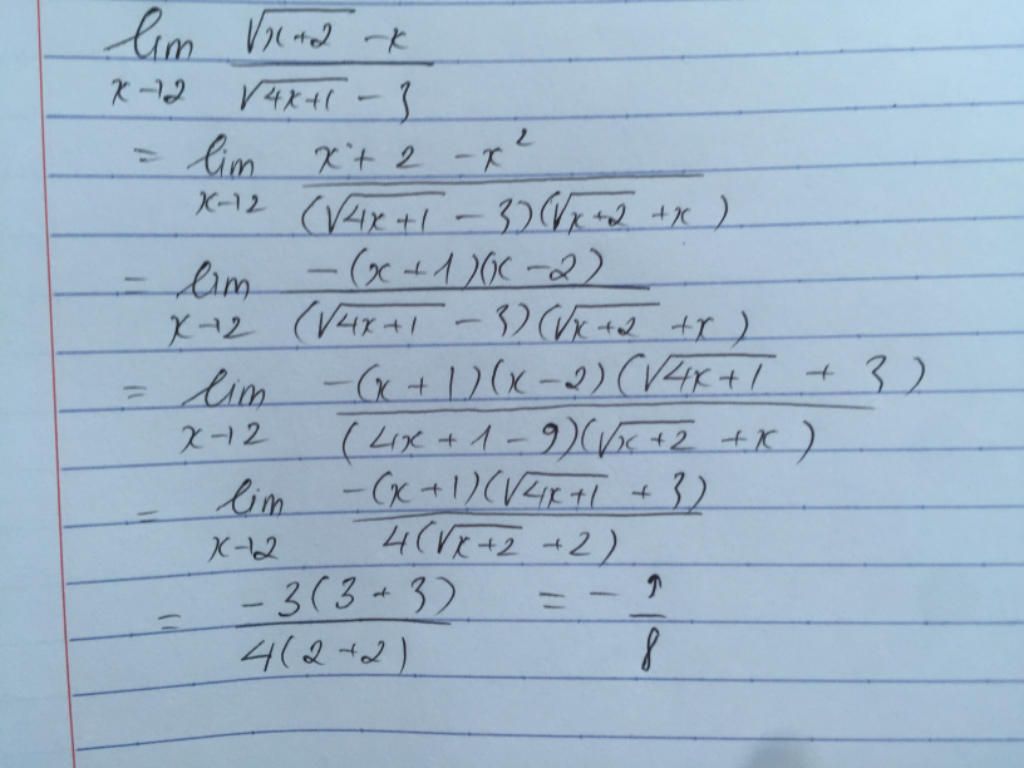 lim x→2 (√(x+2) - x)/(√(4x+1) - 3)
= lim x→2 (x + 2 - x²)/((√(4x+1) - 3)(√(x+2) + x))
= lim x→2 (-(x+1)(x-2))/((√(4x+1) - 3)(√(x+2) + x))
= lim x→2 (-(x+1)(x-2)(√(4x+1) + 3))/((4x+1-9)(√(x+2) + x))
= lim x→2 (-(x+1)(√(4x+1) + 3))/(4(√(x+2) + 2))
= (-3(3+3))/(4(2+2)) = -9/8